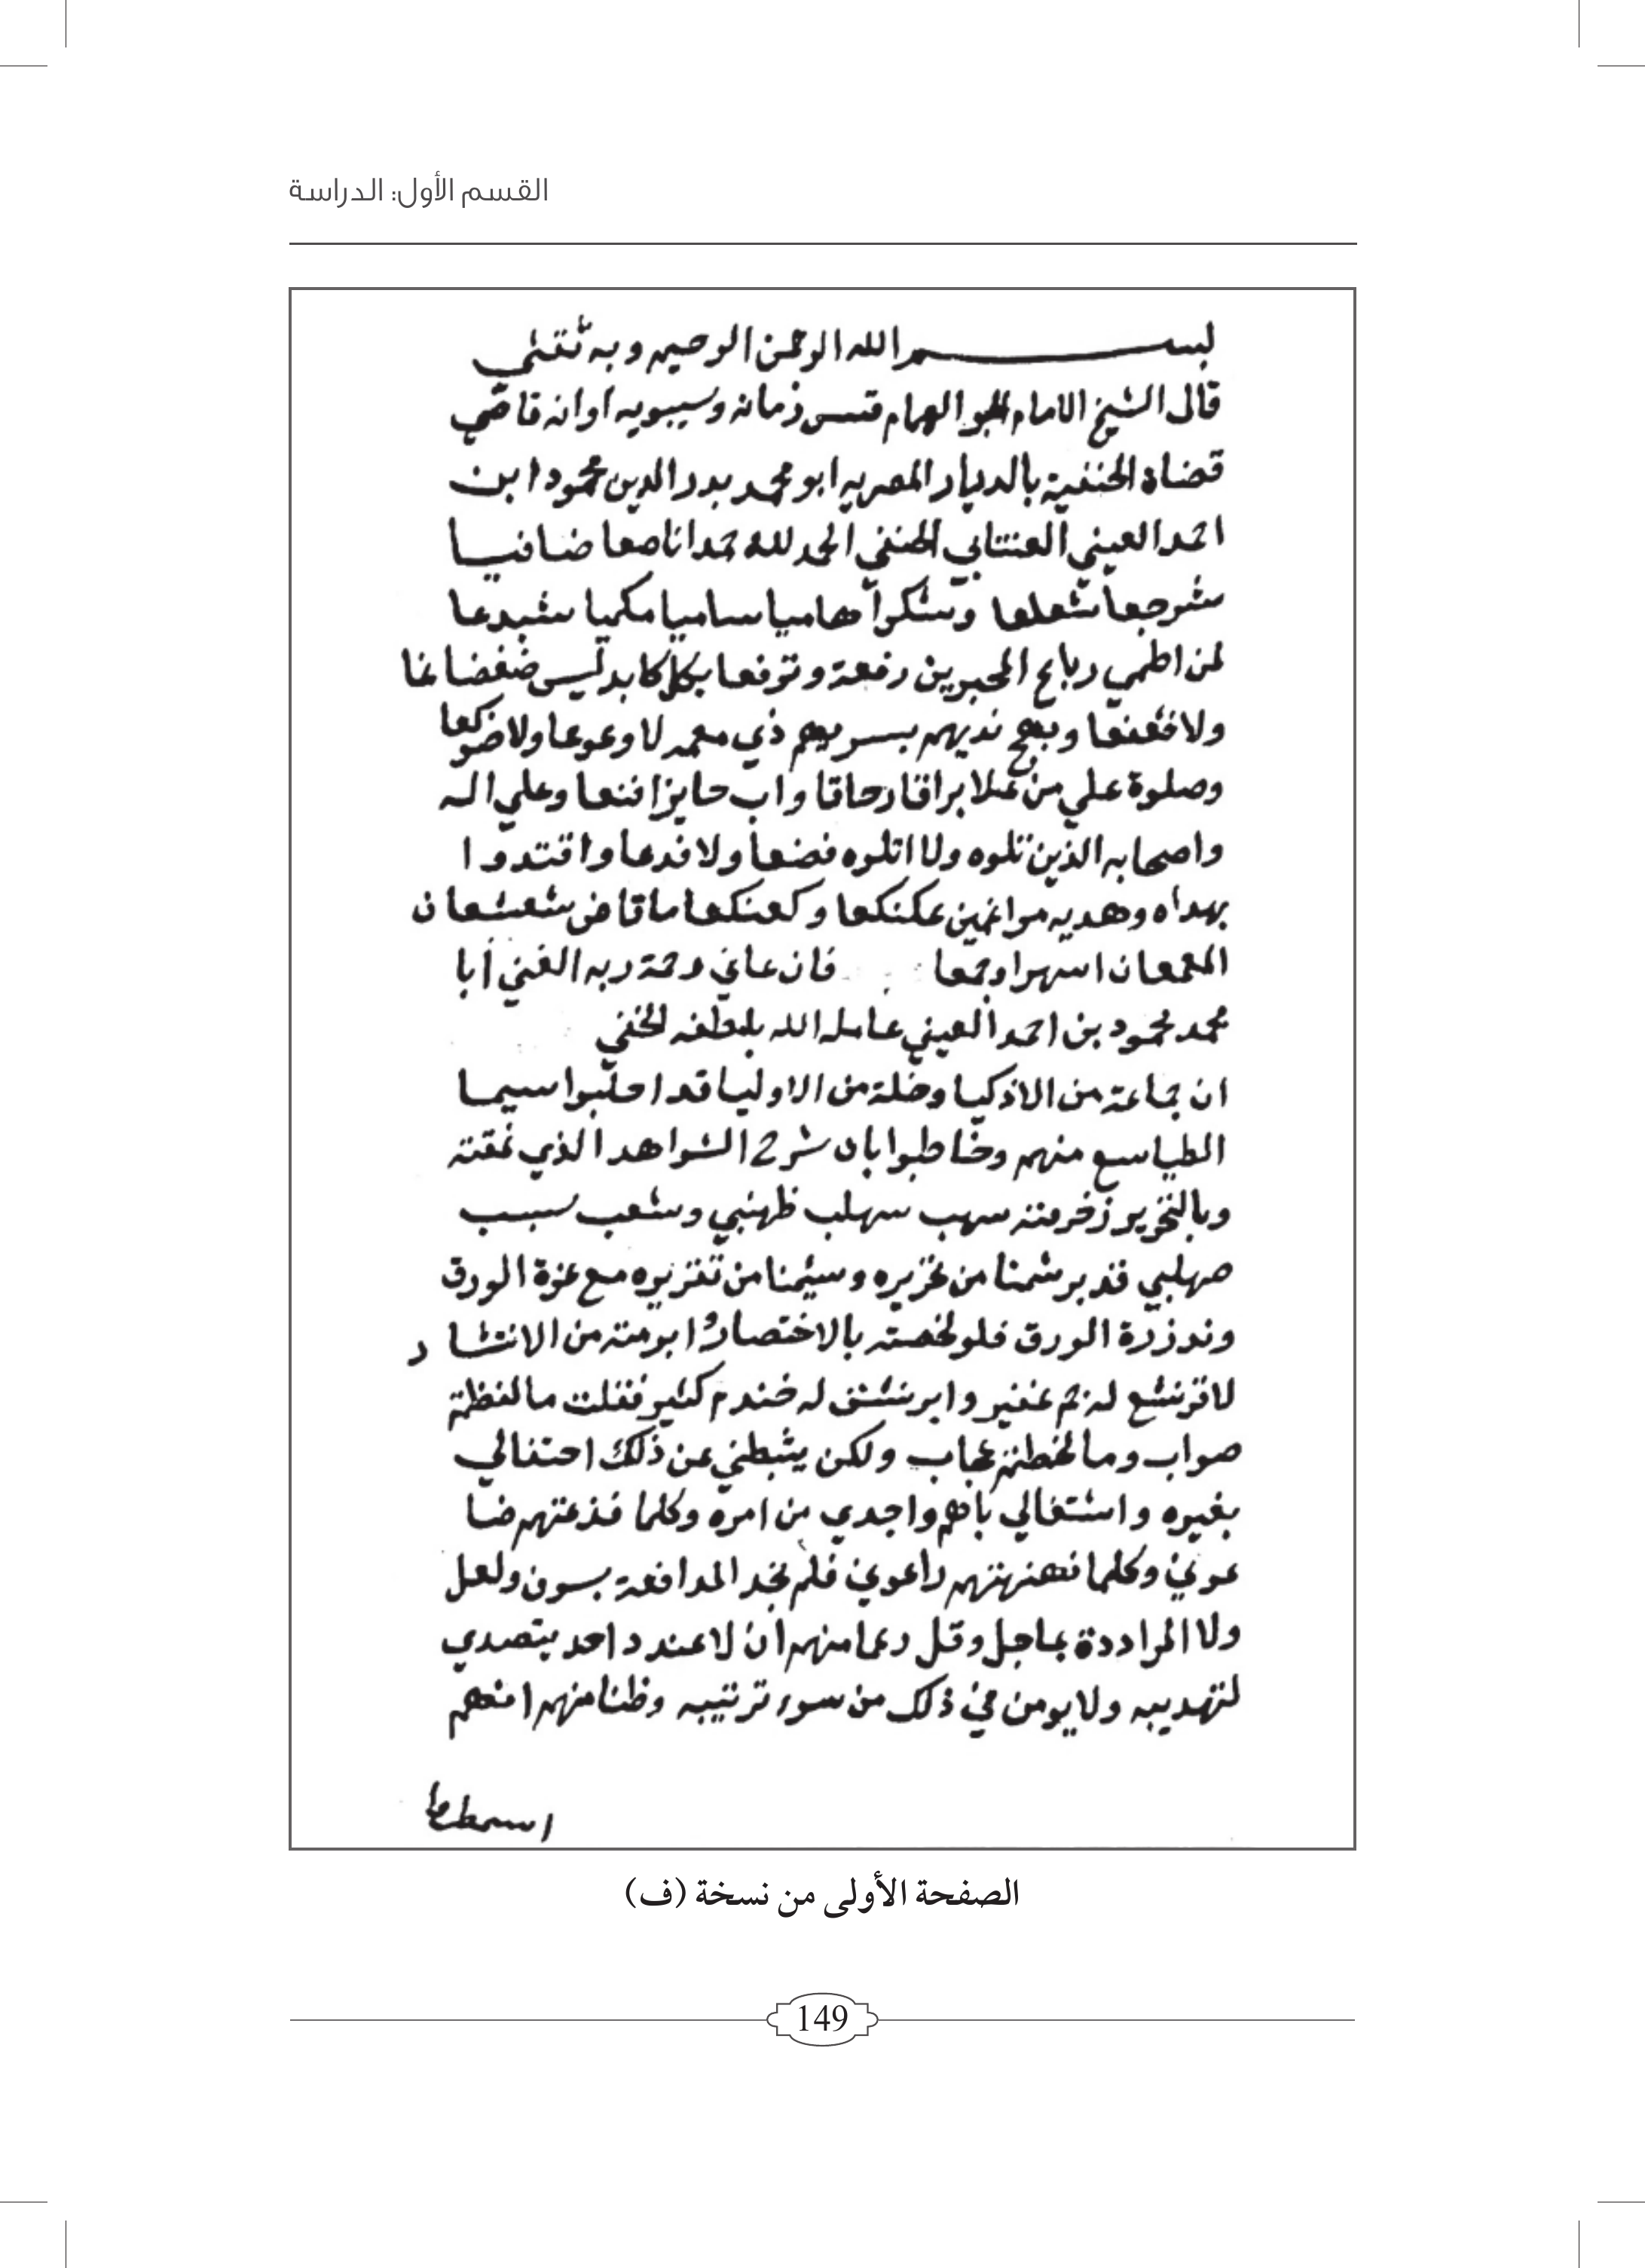 القسم الأول: الدراسة
بســـــم الله الرحمن الرحيم وبه ثقتي
قال الشيخ الامام الهمام قس زمانه وسيبويه اوانه قاضي
قضاة الحنفية بالديار المصريه ابو محمد بدر الدين محمود ابن
احمد العيني العنتابي الحنفي الحمد لله حمدا ناصعا ضافيا
شرجعا شعلعا وشكرا هاميا ساميا
لمن اطمي رباع المحبرين رفعة وترفعا بكل
ولا وبعج نديهم ذي لا وعوعا ولا ضوكعا
وصلوة علي من علا براقا واب حايزا وعلي اله
واصحابه الذين تلوه ولا اتلوه ولا فدعا واقتدوا
بهداه وهديه مراغمين عكنكعا وكعنكعا ما قاض شعشعان
المعمعان اسهرا ودمعا فان عاني رحمة ربه الغني أبا
محمد محمود بن احمد العيني عامله الله بلطفه الخفي
ان جماعة من الاذكيا وخلة من الاوليا قد احلبوا سيما
منهم وخاطبوا بان شرح الشواهد الذي نمقته
وبالتحرير زخرفته سهب سهلب وشعب سبسب
صهلبي قد برشمنا من تحريره وسيمنا من تقريره مع عزة الورق
وندرة الورق فلو لخصته بالاختصار من الانتشار
لاقرنشع له جم غفير وابرنشق له كثير فقلت ما لفظتم
صواب وما لخطتم عجاب ولكن يثبطني عن ذلك احتفالي
بغيره واشتغالي باهم واجدي من امره وكلما قذعتهم ضا
عوني وكلما نهنهتهم راعوني فلم تجد المدافعة بسوف ولعل
ولا المراددة بماجل وقل رعما منهم ان لا عند احد يتصدي
لتهديبه ولا يومن في ذلك من سوء ترتيبه وظنا منهم انهم

الصفحة الأولى من نسخة (ف)
149